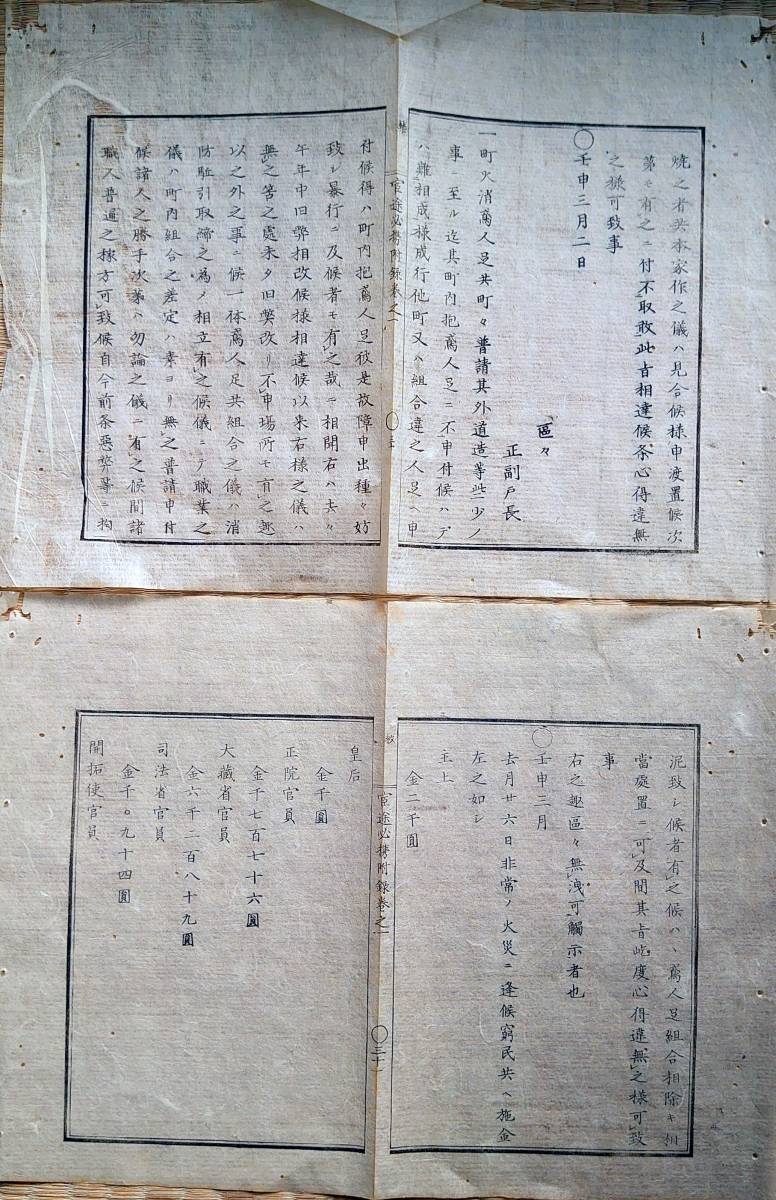 焼之者共本家作之儀ハ見合候様申渡置候次
第モ有之ニ付不取敢此旨相達候条心得違無
之様可致事
○壬申三月二日
區々
正副戸長
一町火消鳶人足共町々普請其外道造等些少ノ
事ニ至ル迄其町内抱鳶人足ニ不申付候ハデ
ハ難相成様成行他町又ハ組合違之人足ヘ申
官途必携附録巻之一
付候得ハ町内抱鳶人足彼是故障申出種々妨
致シ暴行ニ及候者モ有之哉ニ相聞右ハ去々
午年中旧弊相改候様相達候以来右様之儀ハ
無之筈之處未タ旧弊改リ不申場所モ有之趣
以之外之事ニ候一体鳶人足共組合之儀ハ消
防駈引取締之為メ相立有之候儀ニテ職業之
儀ハ町内組合之差定ハ素ヨリ無之普請申付
候諸人之勝手次第ハ勿論之儀ニ有之候間諸
職人普通之稼方可致候自今前条悪弊等ニ拘
泥致シ候者有之候ハヽ鳶人足組合相除キ相
當處置ニ可及間其旨屹度心得違無之様可致
事
右之趣區々無洩可觸示者也
○壬申三月
去月廿六日非常ノ火災ニ逢候窮民共ヘ施金
左之如シ
主上
金二千圓
官途必携附録巻之一
○三十
皇后
金千圓
正院官員
金千七百七十六圓
大藏省官員
金六千二百八十九圓
司法省官員
金千〇九十四圓
開拓使官員